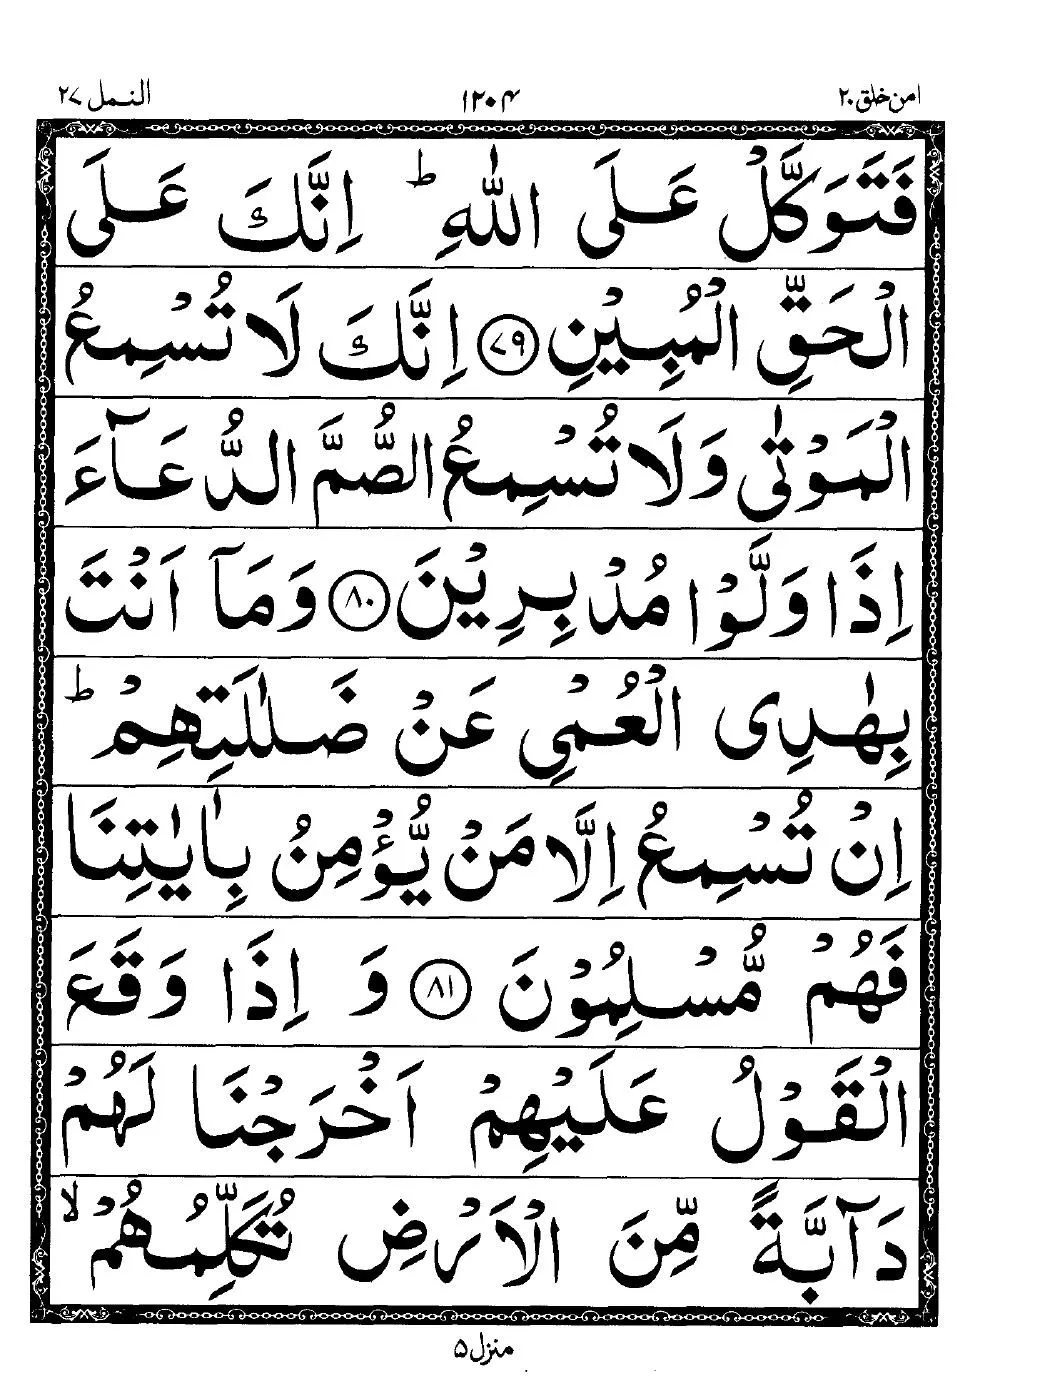 امن خلق ٢٠
١٢٠۴
النمل ٢٧
فَتَوَكَّلْ عَلَى اللّٰهِ ؕ اِنَّكَ عَلَى
الْحَقِّ الْمُبِيْنِ ﴿٧٩﴾ اِنَّكَ لَا تُسْمِعُ
الْمَوْتٰى وَلَا تُسْمِعُ الصُّمَّ الدُّعَآءَ
اِذَا وَلَّوْا مُدْبِرِيْنَ ﴿٨٠﴾ وَمَآ اَنْتَ
بِهٰدِى الْعُمْىِ عَنْ ضَلٰلَتِهِمْ ؕ
اِنْ تُسْمِعُ اِلَّا مَنْ يُّؤْمِنُ بِاٰيٰتِنَا
فَهُمْ مُّسْلِمُوْنَ ﴿٨١﴾ وَ اِذَا وَقَعَ
الْقَوْلُ عَلَيْهِمْ اَخْرَجْنَا لَهُمْ
دَآبَّةً مِّنَ الْاَرْضِ تُكَلِّمُهُمْ ۙ
منزل ۵